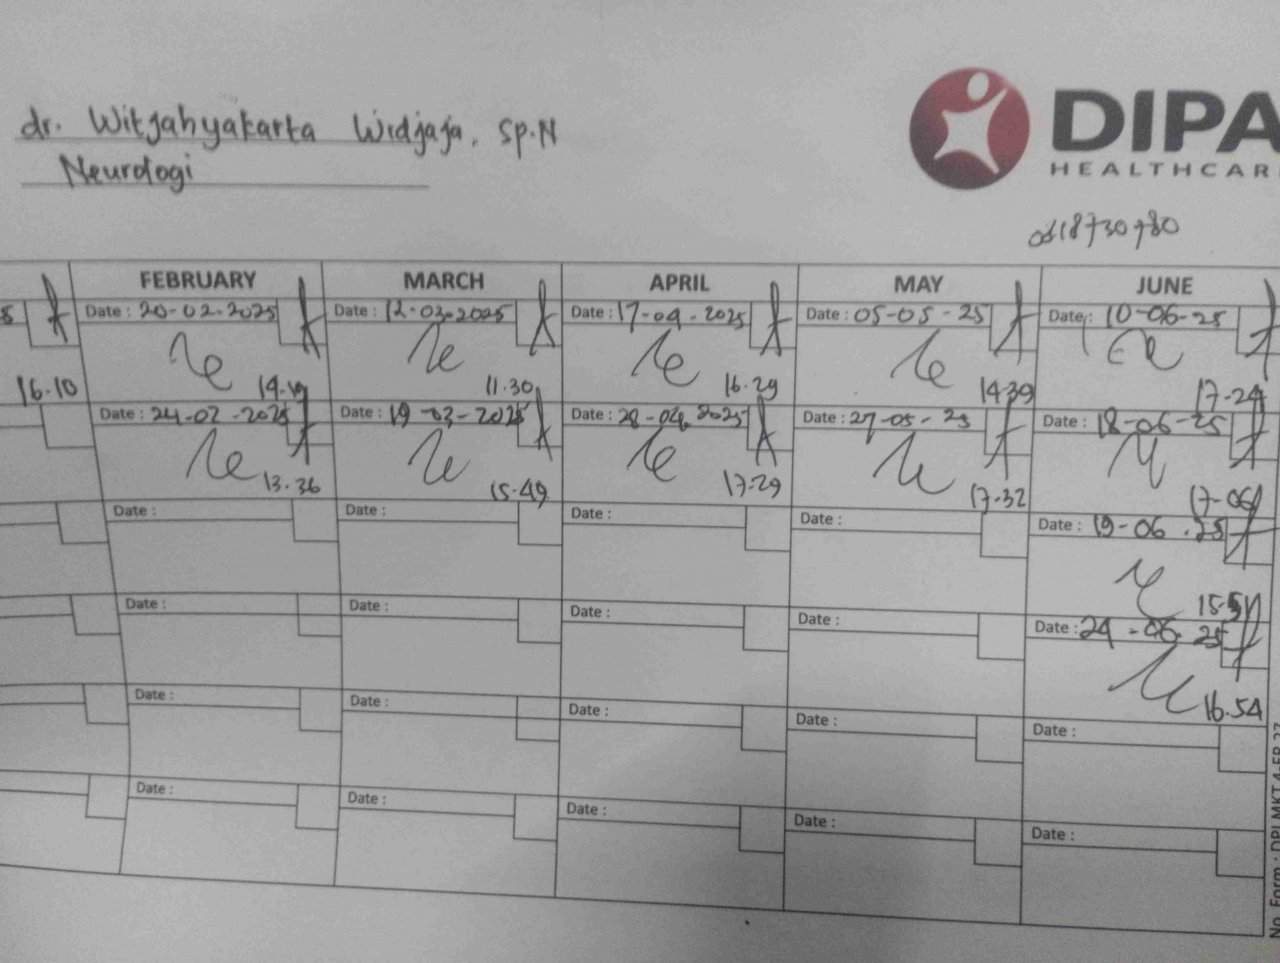 dr. Witjahyakarta Widjaja, Sp.N
Neurologi
DIPA
HEALTHCAR
FEBRUARY MARCH APRIL MAY JUNE
5 Date : 20-02-2025 Date : 12-03-2025 Date : 17-04-2025 Date : 05-05-25 Date : 10-06-25
16.10 11.30 16.29 14.39 17-24
Date : 24-02-2025 Date : 19-03-2025 Date : 28-04-2025 Date : 27-05-25 Date : 18-06-25
13.36 15.49 17.29 17.32 17-06
Date : Date : Date : Date : Date : 19-06.25
15.51
Date : Date : Date : Date : Date : 24-06.25
16.54
Date : Date : Date : Date : Date :
Date : Date : Date : Date : Date :
No. Form : DPI.MKT.4-FR.27